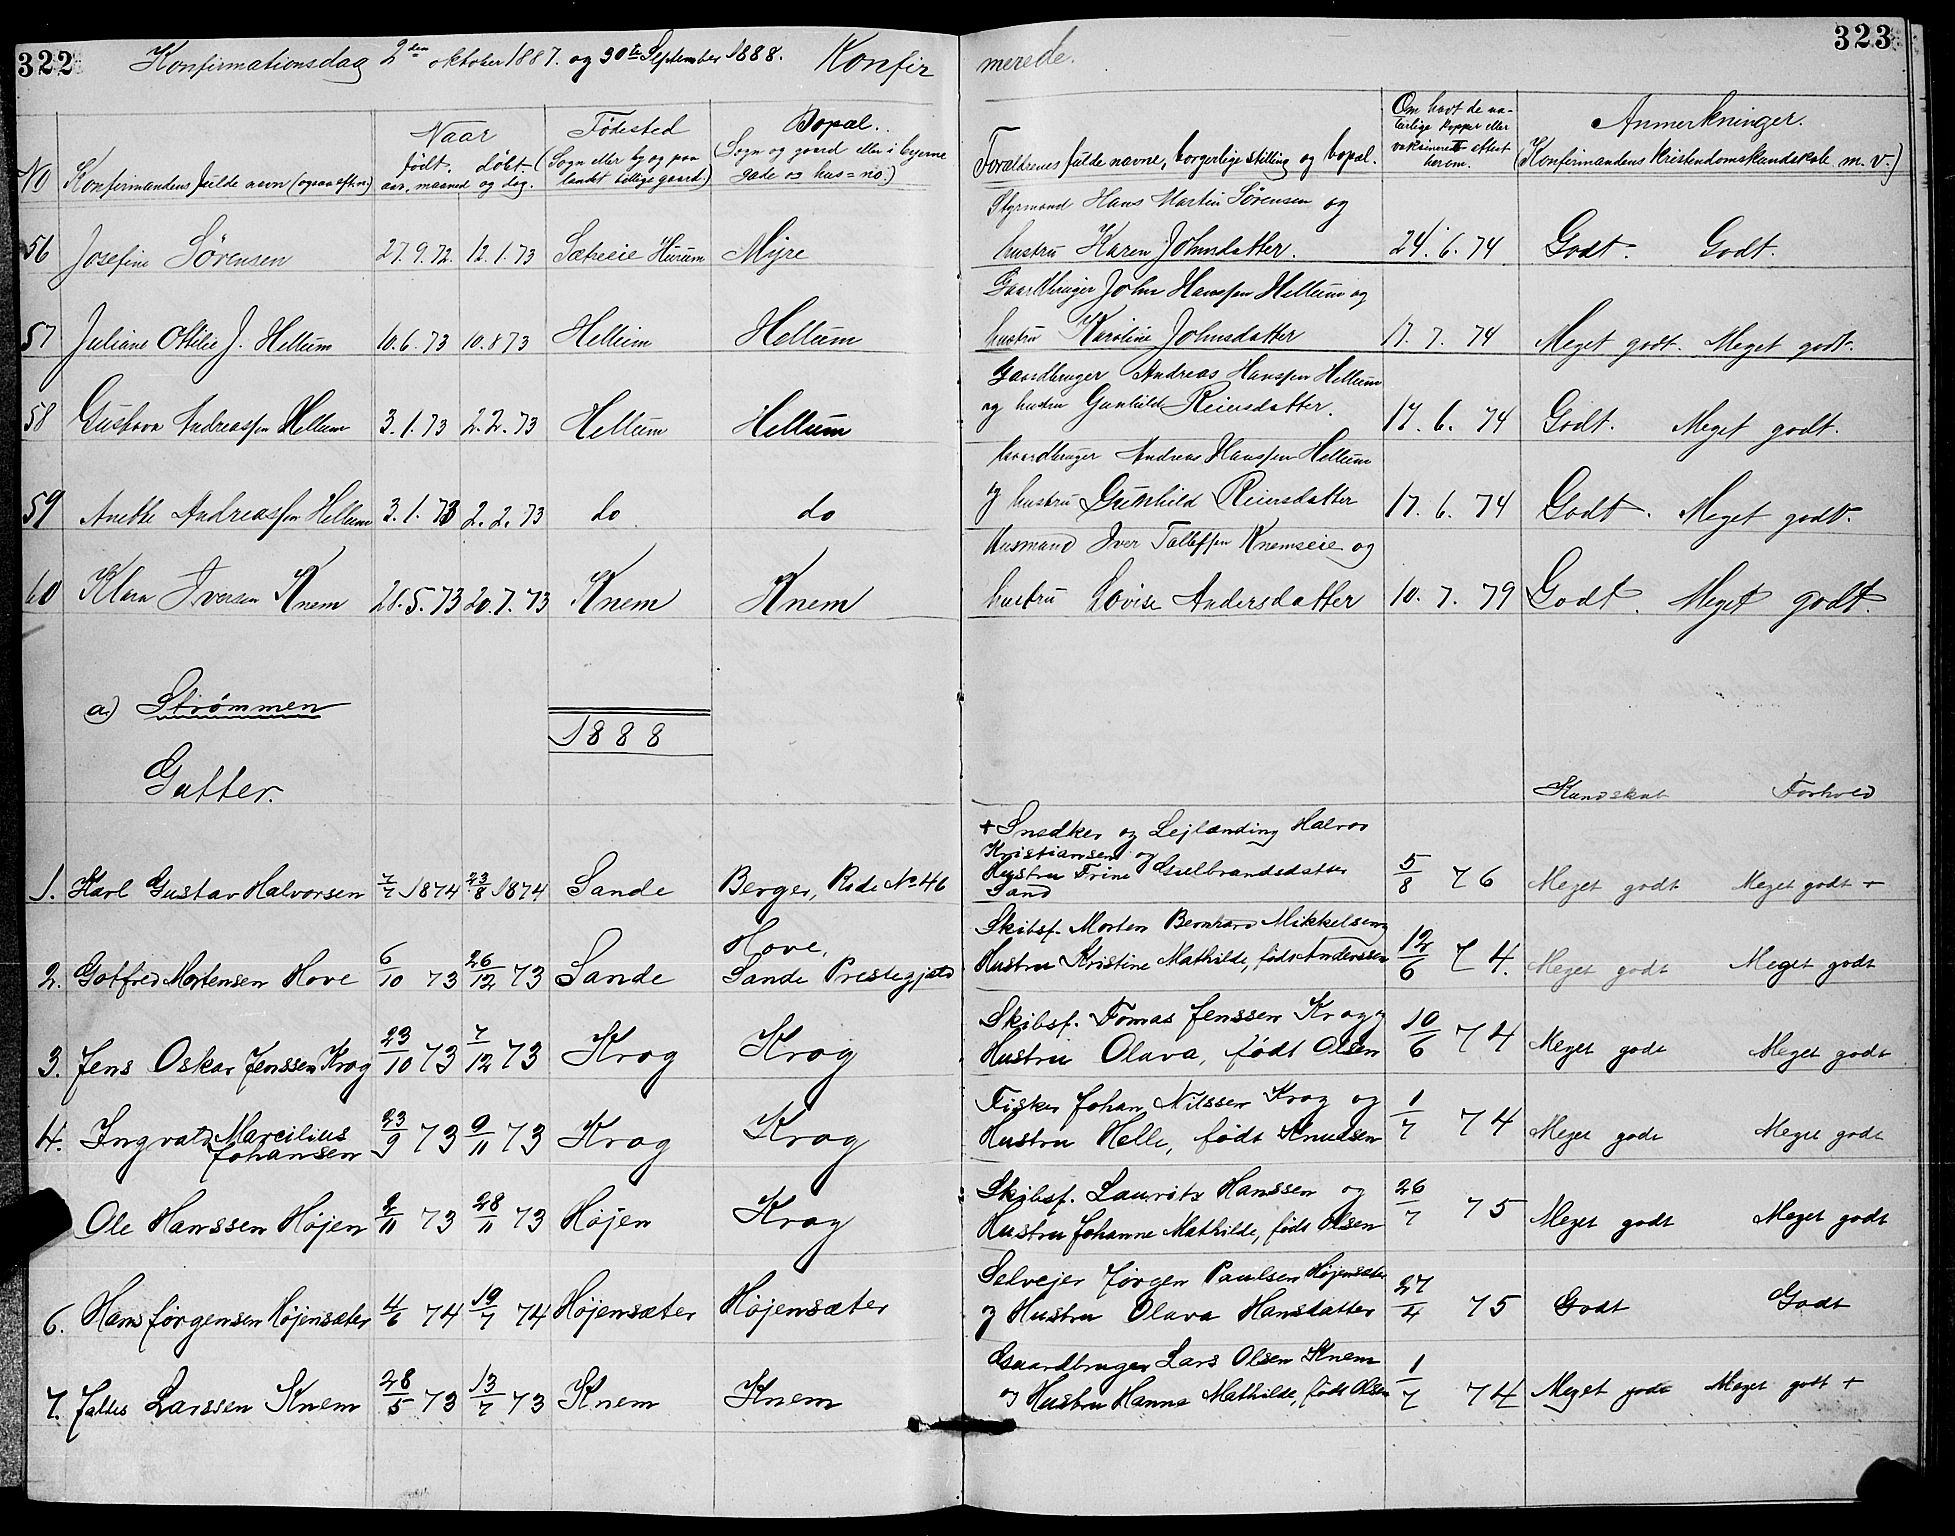 322 Konfirmationsdag 2den oktober 1887. og 30te September 1888. Konfir merede. 323
No Konfirmandens fulde navn (ogsaa eftn.) Naar født. døbt. aar, maaned og dag. Fødested (Sogn eller by og paa landet tillige gaard.) Bopæl. (Sogn og gaard eller i byerne gade og hus=no.) Forældrenes fulde navne, borgerlige stilling og bopæl. Om havt de naturlige kopper eller vaksineret attest herom. Anmerkninger. (Konfirmandens kristendomskundskab m. v.)
Styrmand Hans Martin Sørensen og
56 Josefine Sørensen 27.9.72. 12.1.73 Sætreeie Hurum Myre hustru Karen Johnsdatter. 24.6.74 Godt. Godt.
Gaardbruger John Hanssen Hellum og
57 Juliane Otilie J. Hellum 10.6.73 10.8 73 Hellum Hellum hustru Karoline Johnsdatter 17.7.74 Meget godt. Meget godt.
Gaardbruger Andreas Hanssen Hellum
58 Gustava Andreassen Hellum 3.1.73 2.2.73 Hellum Hellum og hustru Gunhild Reiersdatter. 17.6.74 Godt. Meget godt.
Gaardbruger Andreas Hanssen Hellum
59 Anette Andreassen Hellum 3.1.73 2.2.73 do do og hustru Gunhild Reiersdatter 17.6.74 Godt. Meget godt.
Husmand Iver Tollefsen Knemseie og
60 Klara Iversen Knem 28.5.73 20.7.73 Knem Knem hustru Lovise Andersdatter 10.7.79 Godt. Meget godt.
a.) Strømmen
1888
Gutter.
Kundskab Forhold
+ Snedker og Lejlænding Halvor
Kristiansen og
1. Karl Gustav Halvorsen 7/7 1874 23/8 1874 Sande Berger, Rode No 46 Hustru Trine Gulbrandsdatter 5/8 76 Meget godt Meget godt +
Sand
Hove, Skibsf. Morten Bernhard Mikkelsen og
2. Gotfred Mortensen Hove 6/10 73 26/12 73 Sande Sande Prestegjeld Hustru Kristine Mathilde, født Anderssen 12/6 74. Meget godt Meget godt
Skibsf. Tomas Jenssen Krog og
3. Jens Oskar Jenssen Krog 23/10 73 7/12 73 Krog Krog Hustru Olava, født Olsen 10/6 74 Meget godt Meget godt
Fisker Johan Nilssen Krog og
4. Ingvald Marcilius Johansen 23/9 73 9/11 73 Krog Krog Hustru Helle, født Knudsen 1/7 74 Meget godt Meget godt
Skibsf. Laurits Hanssen og
Ole Hanssen Højen 2/11 73 28/11 73 Højen Krog Hustru Johanne Mathilde, født Olsen 26/7 75 Meget godt Meget godt
Selvejer Jørgen Paulsen Højensæter
6. Hans Jørgensen Højensæter 4/6 74 19/7 74 Højensæter Højensæter og Hustru Olava Hansdatter 27/4 75 Godt Godt
Gaardbruger Lars Olsen Knem
7. Larssen Knem 28/5 73 13/7 73 Knem Knem og Hustru Hanna Mathilde, født Olsen 1/7 74 Meget godt Meget godt +